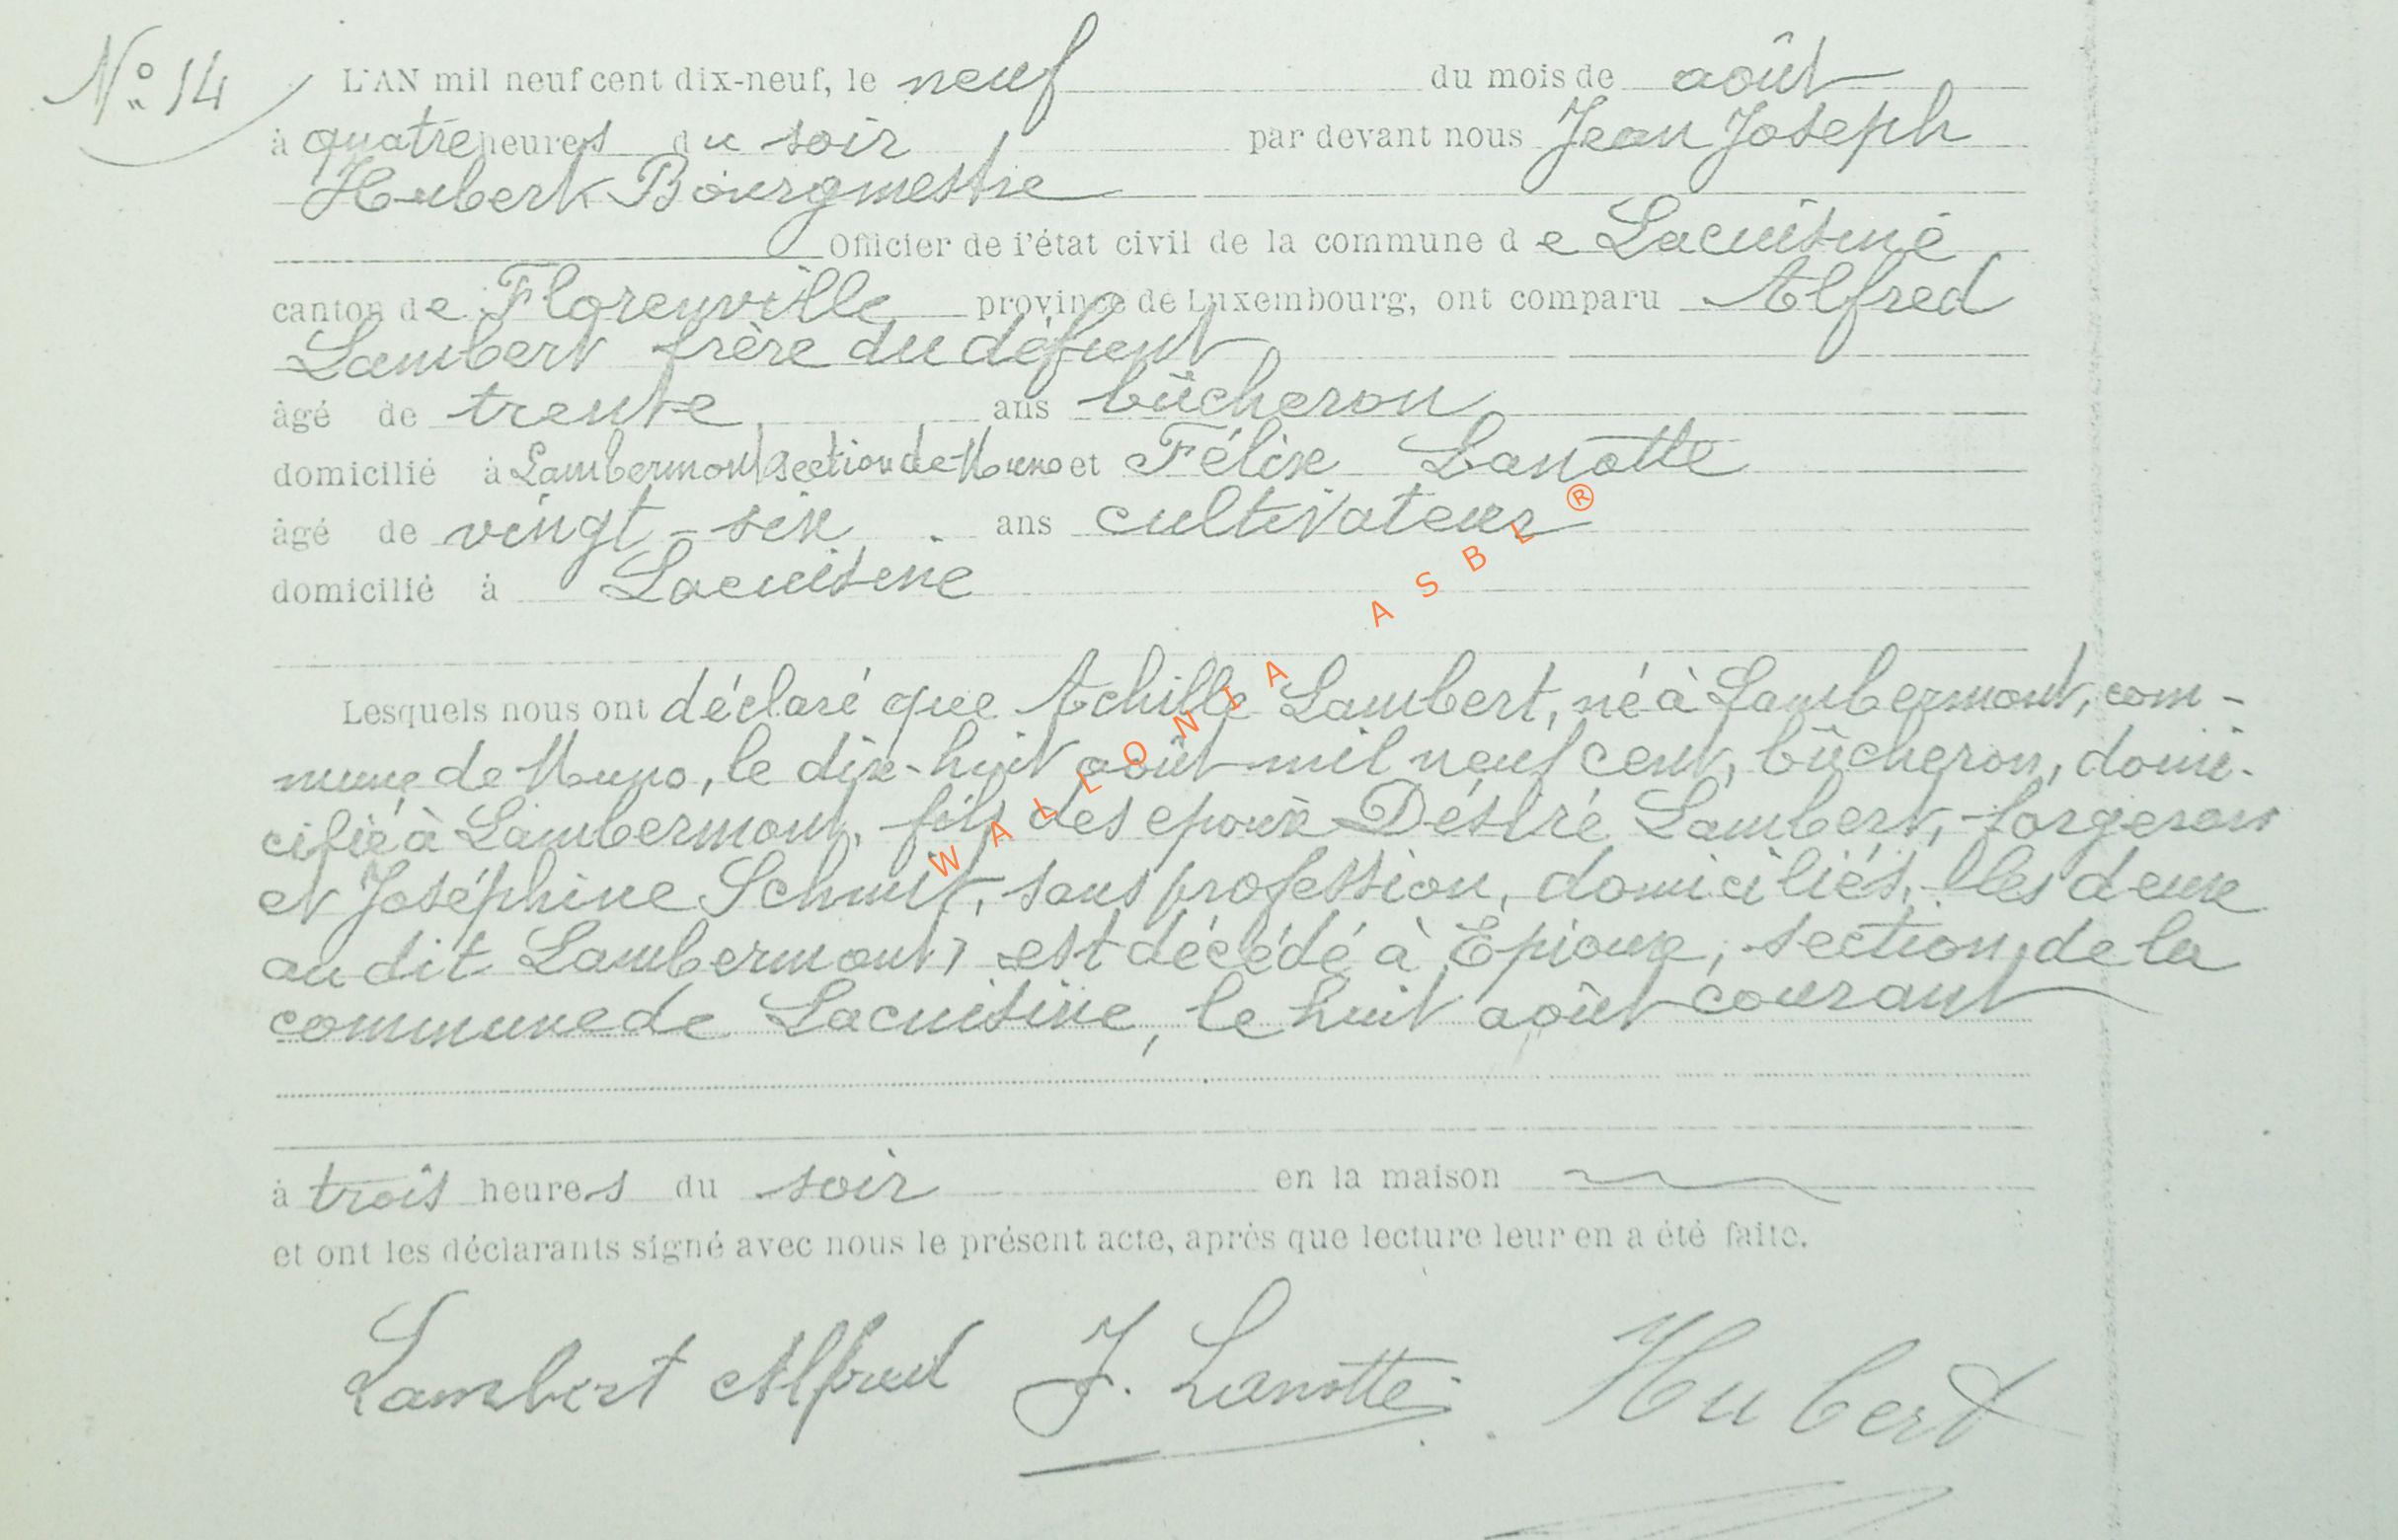 N° 14
L'AN mil neuf cent dix-neuf, le neuf du mois de août
à quatre heures du soir par devant nous Jean Joseph
Hubert Bourgmestre
Officier de l'état civil de la commune de Lacuisine
canton de Florenville province de Luxembourg, ont comparu Alfred
Lambert frère du défunt
âgé de trente ans bûcheron
domicilié à Lambermont section de Muno et Félix Lanotte
âgé de vingt-six ans cultivateur
domicilié à Lacuisine
Lesquels nous ont déclaré que Achille Lambert, né à Lambermont, com-
mune de Muno, le dix-huit août mil neuf cent, bûcheron, domi-
cilié à Lambermont, fils des epoux Désiré Lambert, forgeron
et Joséphine Schmit, sans profession, domiciliés, tles deux
au dit Lambermont, est décédé à Epioux, section de la
commune de Lacuisine, le huit août courant
à trois heures du soir en la maison
et ont les déclarants signé avec nous le présent acte, après que lecture leur en a été faite.
Lambert Alfred F. Lanotte Hubert
WALLONIA ASBL ®